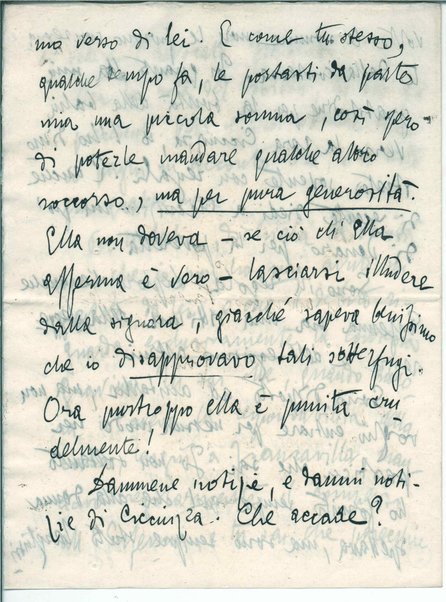 ma verso di lei. E come tu stesso,
qualche tempo fa, le portasti da parte
mia una piccola somma, così spero
di poterle mandare qualche altro
soccorso, ma per pura generosità.
Ella non doveva – se ciò ch'Ella
afferma è vero – lasciarsi illudere
dalla signora, giacché sapeva benissimo
che io disapprovavo tali sotterfugi.
Ora purtroppo ella è punita cru
delmente!
Dammene notizie, e dammi noti-
zie di Ciccuzza. Che accade?